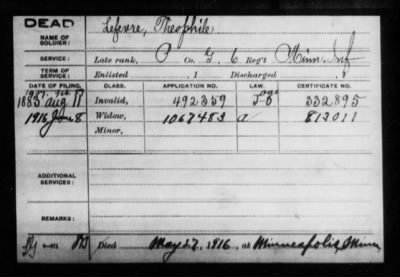 DEAD
NAME OF SOLDIER: Lefevre, Theophile
SERVICE: Late rank, P Co. G, 6 Reg't Minn. Inf
TERM OF SERVICE: Enlisted , 1 Discharged , 1
DATE OF FILING. CLASS. APPLICATION NO. LAW. CERTIFICATE NO.
1883 Aug 11 Invalid, 492359 332895
1916 June 8 Widow, 1067483 a 812011
Minor,
ADDITIONAL SERVICES:
REMARKS:
Died May 27, 1916, at Minneapolis, Minn